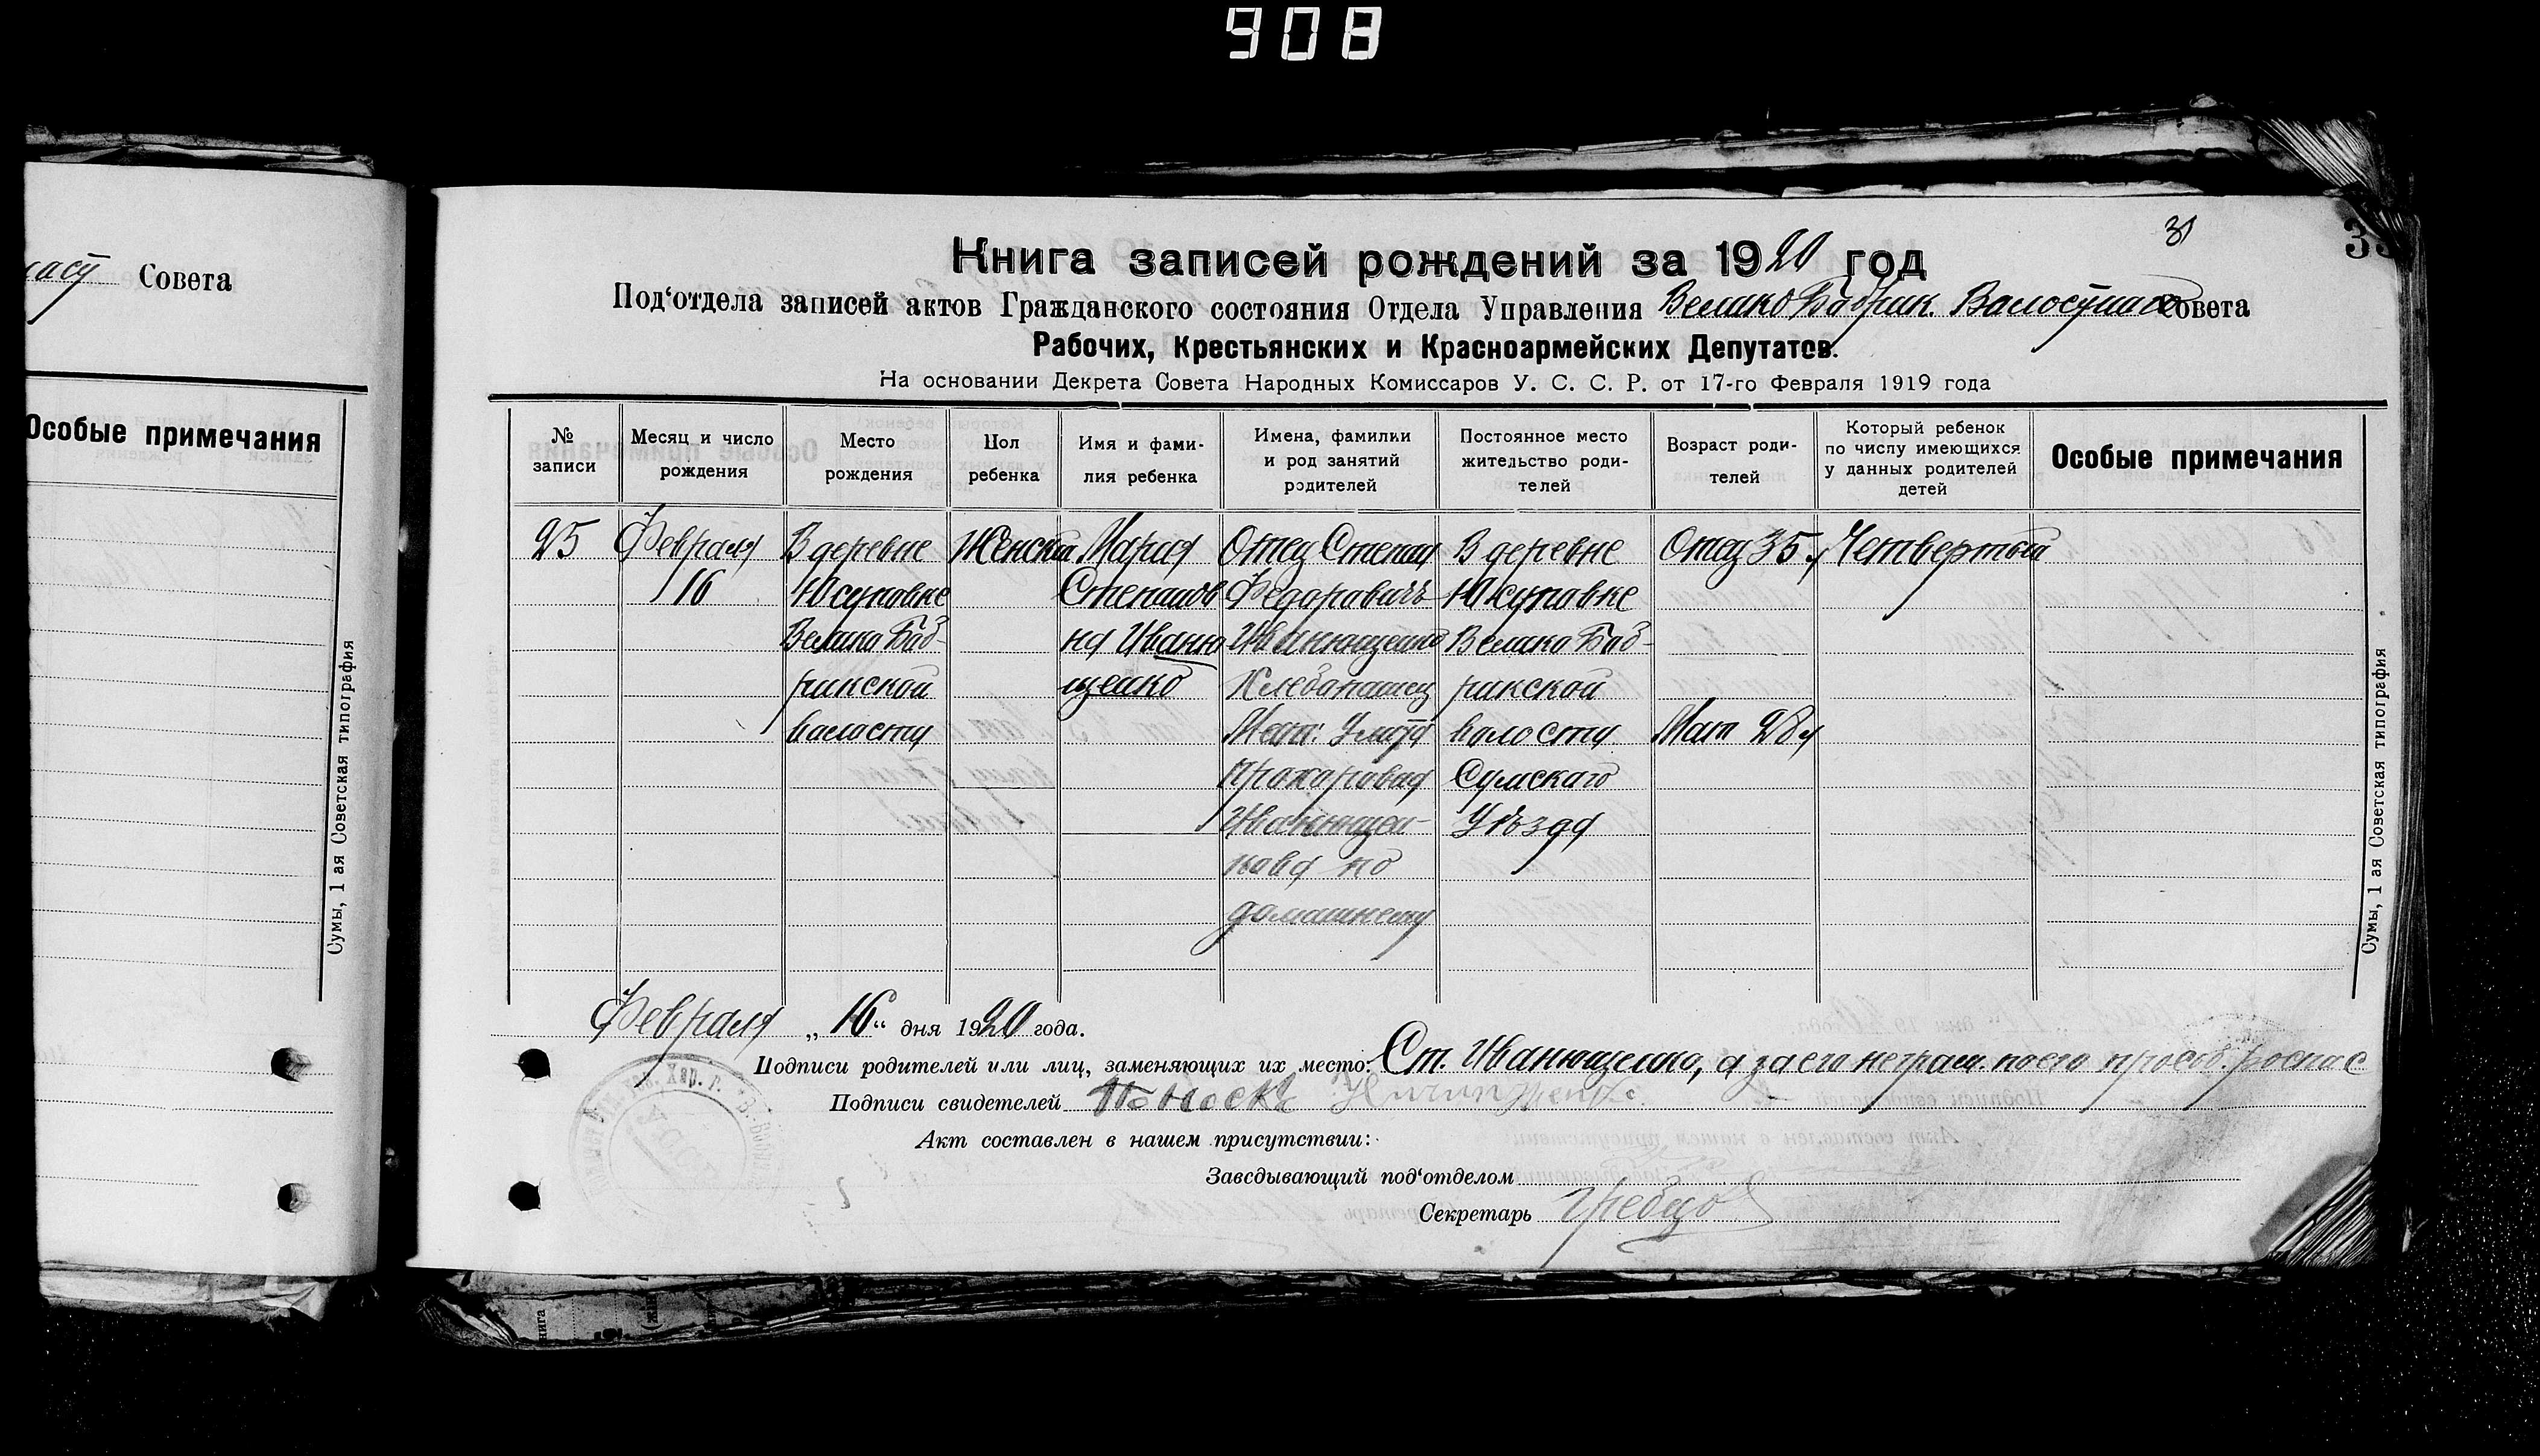 908
Совета
Особые примечания
Сумы, 1 ая Советская типография
31
Книга записей рождений за 1920 год
Под‘отдела записей актов Гражданского состояния Отдела Управления Велико Бобрик. Совета
Рабочих, Крестьянских и Красноармейских Депутатов.
На основании Декрета Совета Народных Комиссаров У. С. С. Р. от 17-го Февраля 1919 года
№ записи
Месяц и число рождения
Место рождения
Пол ребенка
Имя и фами-лия ребенка
Имена, фамилии и род занятий родителей
Постоянное место жительство роди-телей
Возраст роди-телей
Который ребенок по числу имеющихся у данных родителей детей
Особые примечания
25 Февраля В деревне Женский Мария Отец Степан В деревне Отец 35 Четвертый
16 Юсуповке Степанов Федоравичъ Юсуповке
Велико Боб- на Иваню Иванющенко Велико Боб-
рикской щенко Хлебопашец рикской
валости Мат. валости Мат 28
Прохоровна Сумскаго
Иванющен- Уѣзда
кова по
домашнему
Февраля „16“ дня 1920 года.
Подписи родителей или лиц, заменяющих их место: Ст. Иванющенко, а за его неграм. по его
Подписи свидетелей
Акт составлен в нашем присутствии:
Заведывающий под‘отделом
Секретарь
Сумы, 1 ая Советская типография